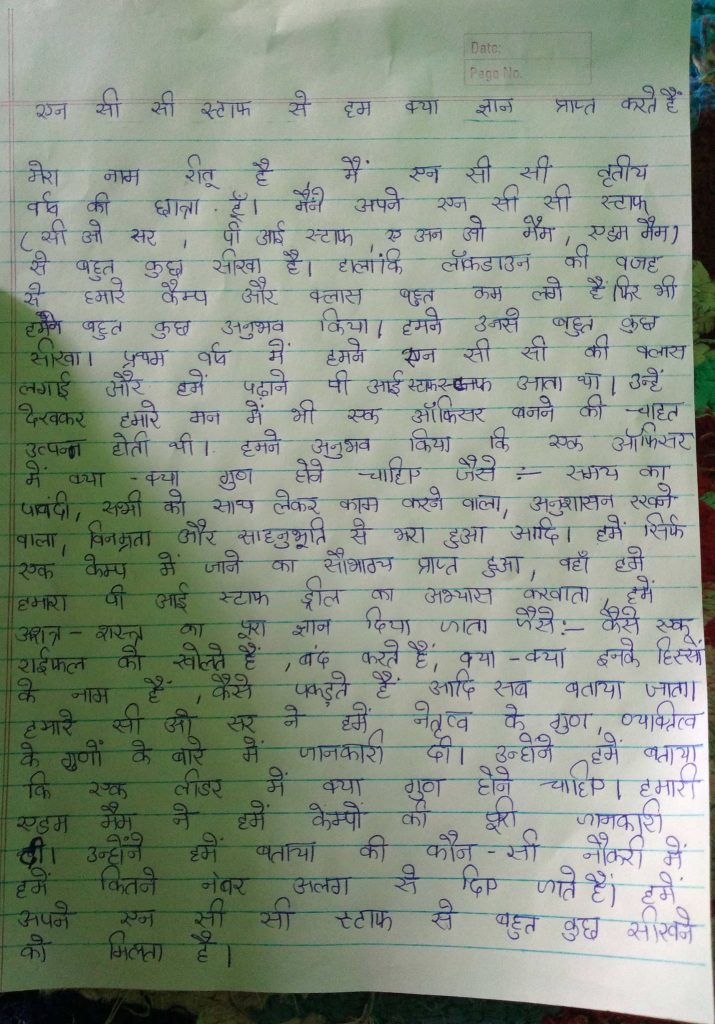 Date:
Page No.
एन सी सी स्टाफ से हम क्या ज्ञान प्राप्त करते हैं
मेरा नाम रीतू है, मैं एन सी सी तृतीय
वर्ष की छात्रा हूँ। मैंने अपने एन सी सी स्टाफ
(सी ओ सर, पी आई स्टाफ, ए अन ओ मैम, एडम मैम)
से बहुत कुछ सीखा है। हालांकि लॉकडाउन की वजह
से हमारे कैम्प और क्लास बहुत कम लगे है फिर भी
हमने बहुत कुछ अनुभव किया। हमने उनसे बहुत कुछ
सीखा। प्रथम वर्ष में हमने एन सी सी की क्लास
लगाई और हमें पढ़ाने पी आई स्टाफ आता था। उन्हें
देखकर हमारे मन में भी एक ऑफिसर बनने की चाहत
उत्पन्न होती थी। हमने अनुभव किया कि एक ऑफिसर
में क्या - क्या गुण होने चाहिए जैसे :- समय का
पाबंदी, सभी को साथ लेकर काम करने वाला, अनुशासन रखने
वाला, विनम्रता और साहनुभूति से भरा हुआ आदि। हमें सिर्फ
एक केम्प में जाने का सौभाग्य प्राप्त हुआ, वहाँ हमे
हमारा पी आई स्टाफ ड्रील का अभ्यास करवाता, हमें
अशत्र - शस्त्र का पूरा ज्ञान दिया जाता जैसे:- कैसे एक
राईफल को खोलते हैं, बंद करते हैं, क्या - क्या इनके हिस्सों
के नाम हैं, कैसे पकड़ते हैं आदि सब बताया जाता।
हमारे सी ओ सर ने हमें नेतृत्व के गुण, व्यक्तित्व
के गुणों के बारे में जानकारी दी। उन्होंने हमें बताया
कि एक लीडर में क्या गुण होने चाहिए। हमारी
एडम मैम ने हमें केम्पों की पूरी जानकारी
दी। उन्होंने हमें बताया की कौन - सी नौकरी में
हमें कितने नंबर अलग से दिए जाते हैं। हमें
अपने एन सी सी स्टाफ से बहुत कुछ सीखने
को मिलता है।